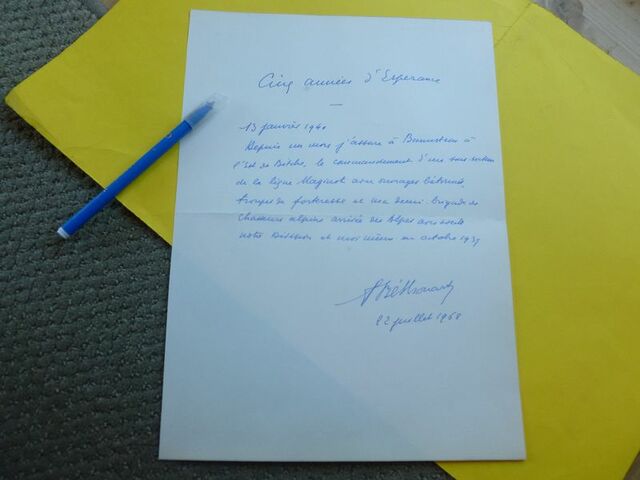 Cinq années d'Esperance
13 janvier 1940
Depuis un mois j'assure à à
l'Est de Bitche, le commandement d'un sous secteur
de la ligne Maginot avec ouvrages bétonnés,
troupe de forteresse et une demi-brigade de
chasseurs alpins arrivée des Alpes avec
notre Division et moi même en octobre 1939
Béthouart
22 juillet 1968